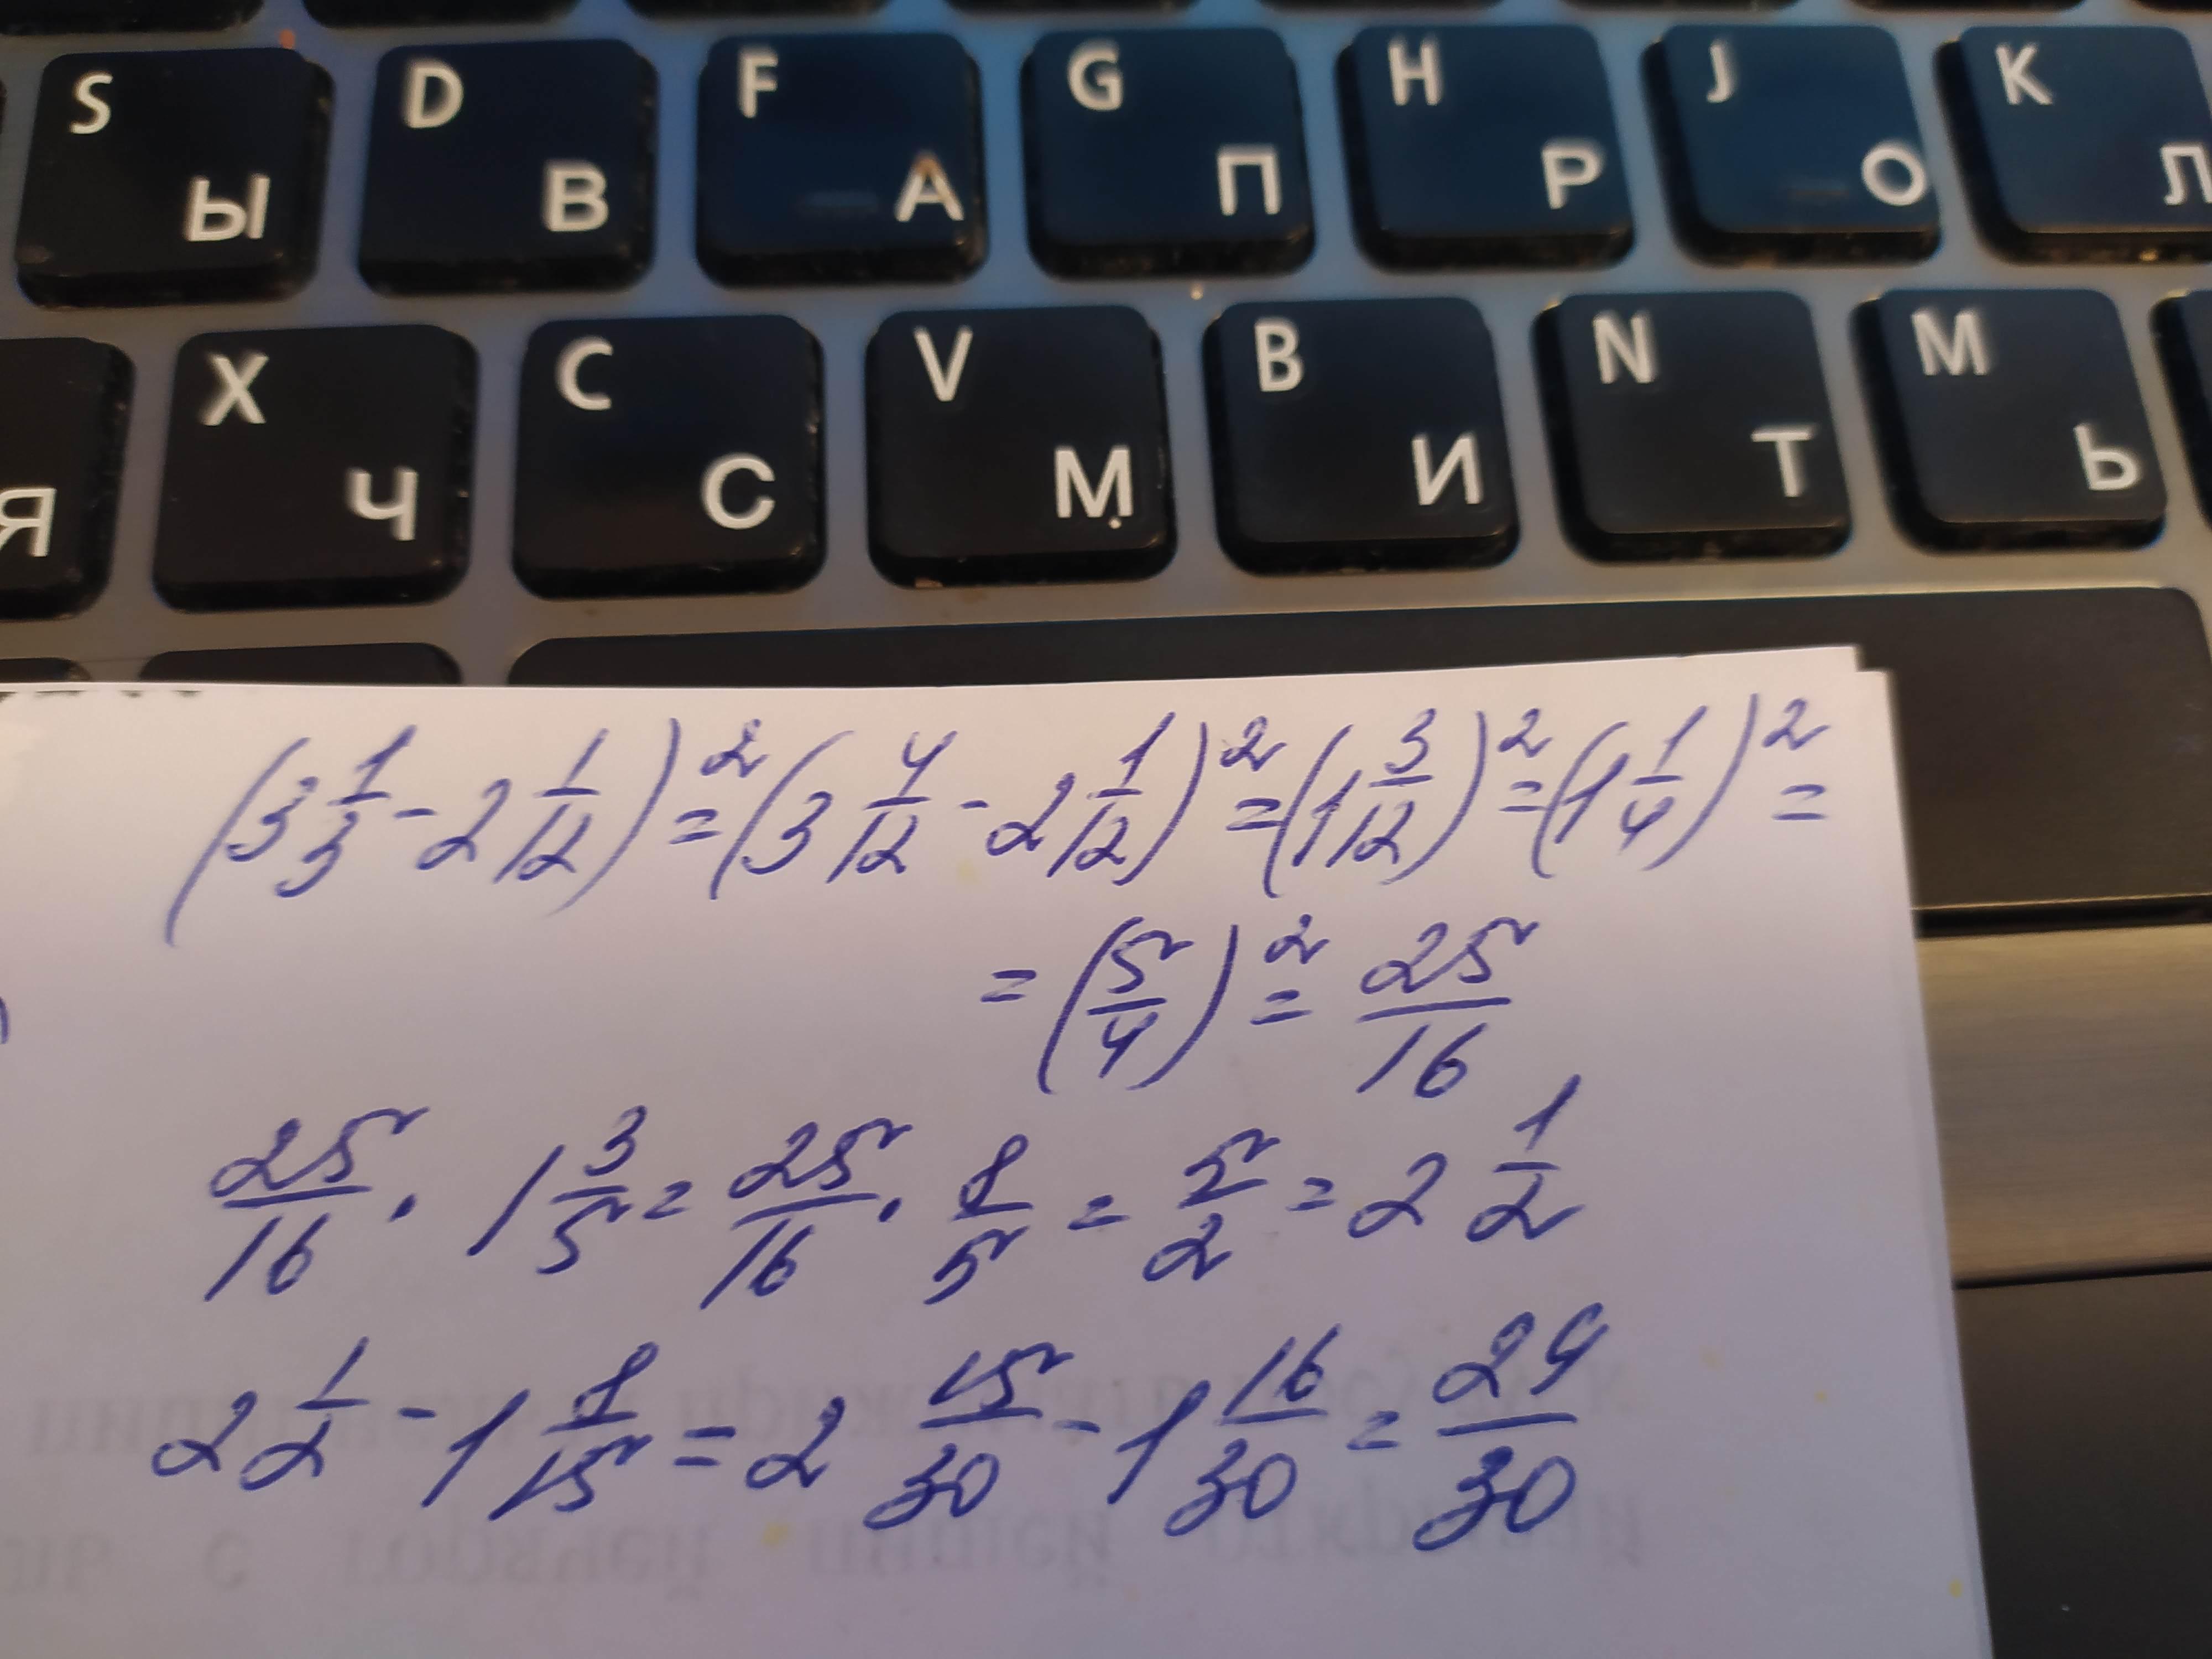 S Ы D В F А G П H Р J О K Л
Я X Ч C С V М B И N Т M Ь
(3 1/3 - 2 1/12)² = (3 4/12 - 2 1/12)² = (1 3/12)² = (1 1/4)² =
= (5/4)² = 25/16
25/16 · 1 3/5 = 25/16 · 8/5 = 5/2 = 2 1/2
2 1/2 - 1 8/15 = 2 15/30 - 1 16/30 = 29/30